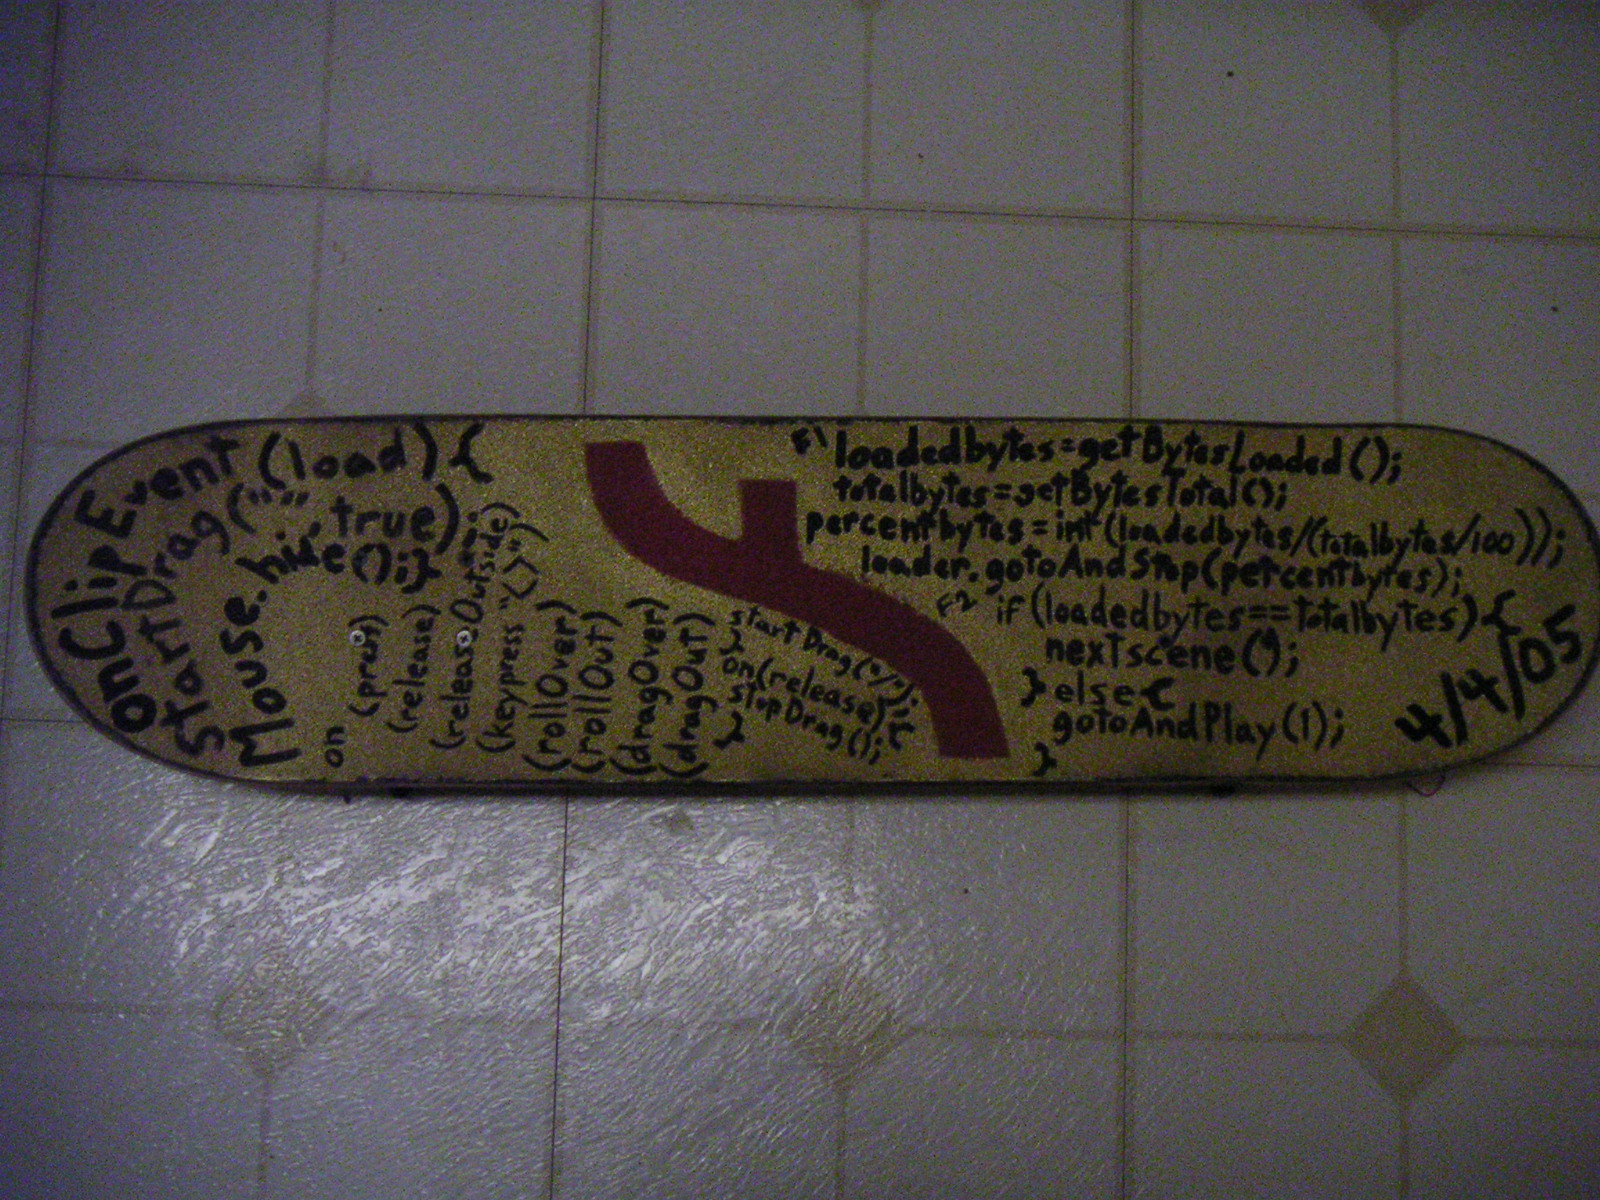 onClipEvent (load) {
startDrag("", true);
Mouse.hide();}
on
(press)
(release)
(releaseOutside)
(keypress "<>")
(rollOver)
(rollOut)
(dragOver)
(dragOut)
startDrag("/");
}
on(release) {
stopDrag();
}
F1 loadedbytes=getBytesLoaded();
totalbytes=getBytesTotal();
percentbytes=int(loadedbytes/(totalbytes/100));
loader.gotoAndStop(percentbytes);
F2 if (loadedbytes==totalbytes) {
nextscene();
} else {
gotoAndPlay(1);
}
4/4/05